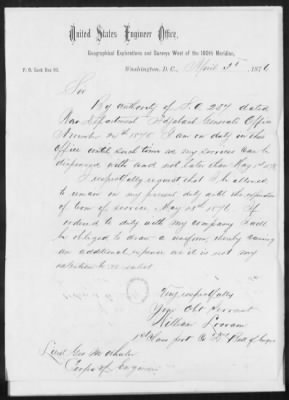 United States Engineer Office,
Geographical Explorations and Surveys West of the 100th Meridian,
P. O. Lock Box 93.
Washington, D. C., April 5th 1876
Sir
By authority of S.O. 287 dated
War Department Adjutant Generals Office
November 24th 1875 I am on duty in this
office until such time as my services can be
dispensed with and not later than May 1st 1876
I respectfully request that I be allowed
to remain on my present duty until the expiration
of term of service May 28th 1876. If
ordered to duty with my company I will
be obliged to draw a uniform, thereby causing
an additional expense as it is not my
intention to re enlist
Very respectfully
Your Obt Servant
William
1st Batt of Engrs
Lieut Geo M Wheeler
Corps of Engineers